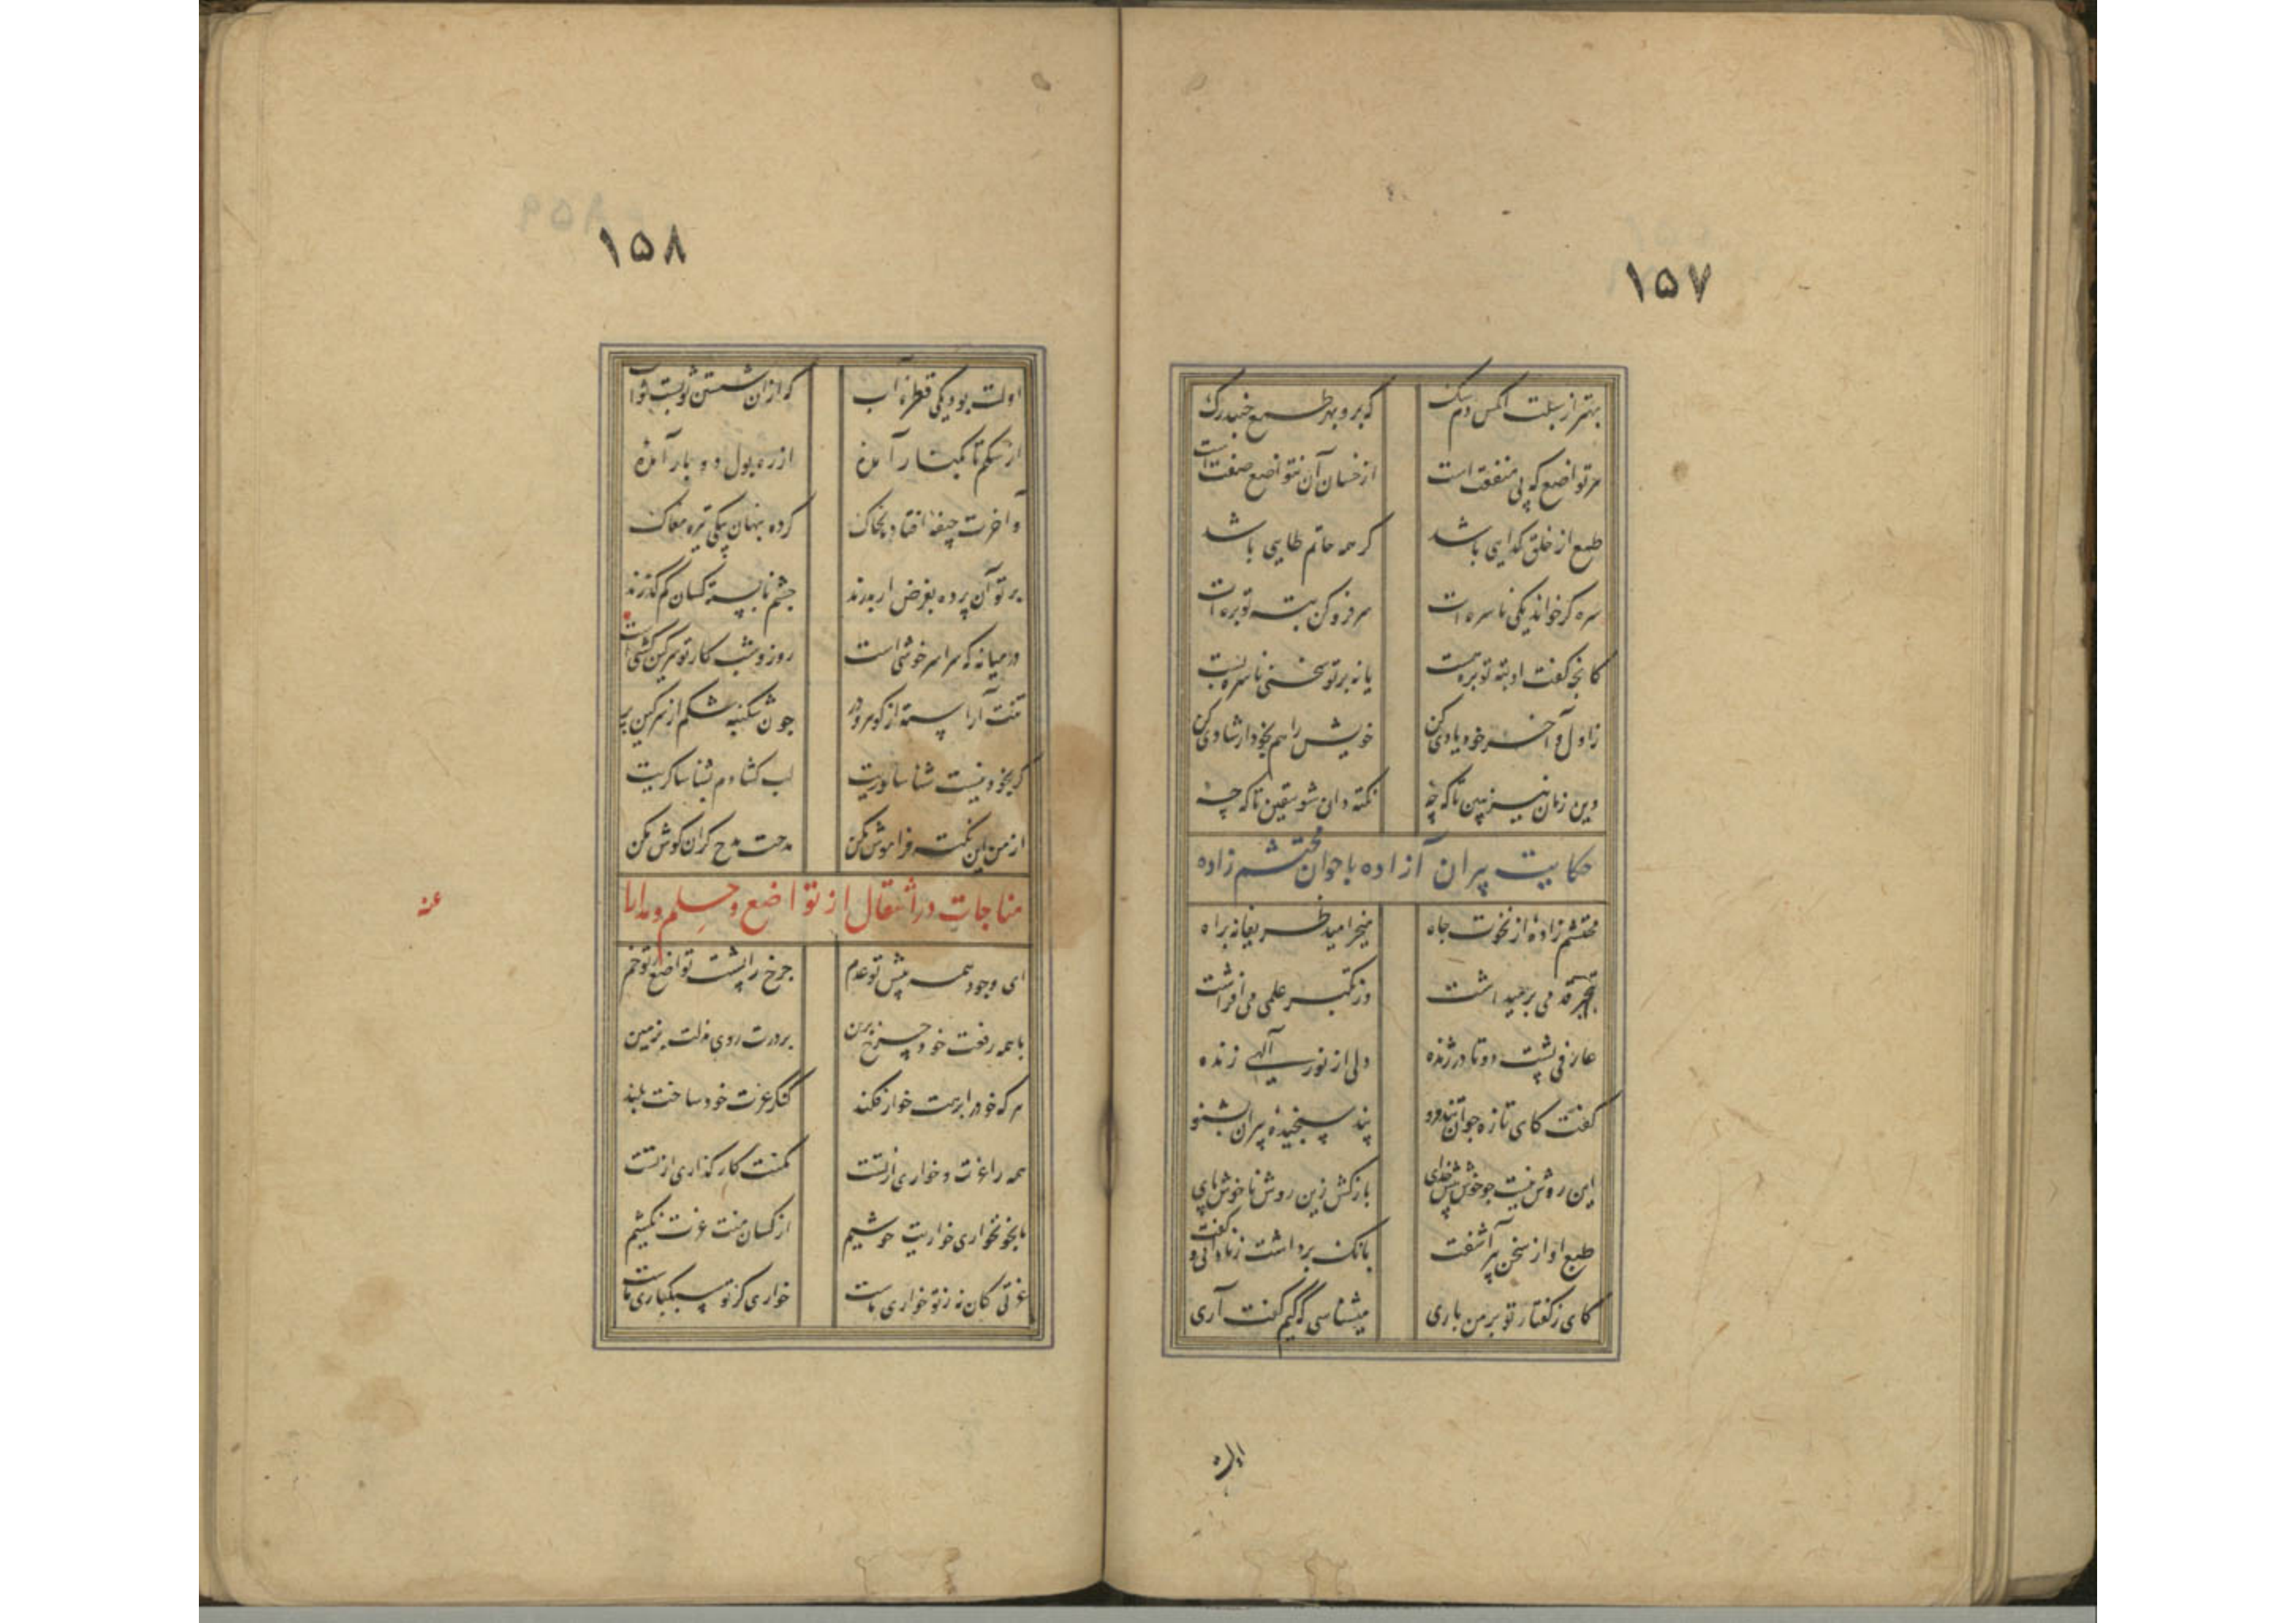 ۱۵۷
بهتر از سبلت آنکس دم سگ
که برو بهر طمع جنبد رگ
هر تواضع که پی منفعت است
از خسان آن نتواضع صفت است
طمع از خلق گدایی باشد
گر همه حاتم طایی باشد
سره گر خواند یکی ناسره‌ات
سر فرو کن به ته توبره‌ات
کانچه گفت او به ته توبره هست
یا نه بر تو سخنی ناسره بست
ز اول و آخر خود یادی کن
خویش را هم بخود ارشادی کن
وین زمان نیز ببین تا که چه
نکته دان شو بیقین تا که چه
حکایت پیران آزاده با جوان محتشم زاده
محتشم زاده‌ از نخوت جاه
میخرامید ظریفانه براه
قدمی بر میداشت
وز تکبر علمی می افراشت
عارفی پشت دوتا در ژنده
دلی از نور الهی زنده
گفت کای تازه جوان تند مرو
پند سنجیدهٔ پیران بشنو
این روش نیست چو خوش پیش خدای
بازکش زین روش ناخوش پای
طبع او از سخن پیر آشفت
بانگ برداشت ز نادانی و گفت
کای ز گفتار تو بر من باری
میشناسی که کیم گفت آری
اولت
۱۵۸
اولت بود یکی قطرهٔ آب
که از آن شستن ثوبست ثواب
از شکم تا بکنار آمدهٔ
از ره بول دو بار آمدهٔ
و آخرت جیفهٔ افتاده بخاک
کرده پنهان بیکی تیره مغاک
بر تو آن پرده بغرض ار بدرند
چشم نابسته کسان کم گذرند
در میانه که سراسر خوشی است
روز و شب کار تو سرگین کشی است
تنت آراسته از گوهر و در
چون شکنبه شکم از سرگین پر
گر بخود نیست شناساوریت
لب گشادم بشناساگریت
از من این نکته فراموش مکن
مدحت مدح گران گوش مکن
مناجات در انتقال از تواضع و حلم و مدارا
ای وجود همه پیش تو عدم
چرخ را پشت تواضع ز تو خم
با همه رفعت خود چرخ برین
بر درت روی مذلت بزمین
هر که خود را برهت خوار فکند
کنگر عزت خود ساخت بلند
همه را عزت و خواری از تست
مکنت کار گذاری از تست
ما بخو نخواری خواریت خوشیم
از کسان منت عزت نکشیم
عزتی کان نه ز تو خواری ماست
خواری کز تو سبکباری ماست